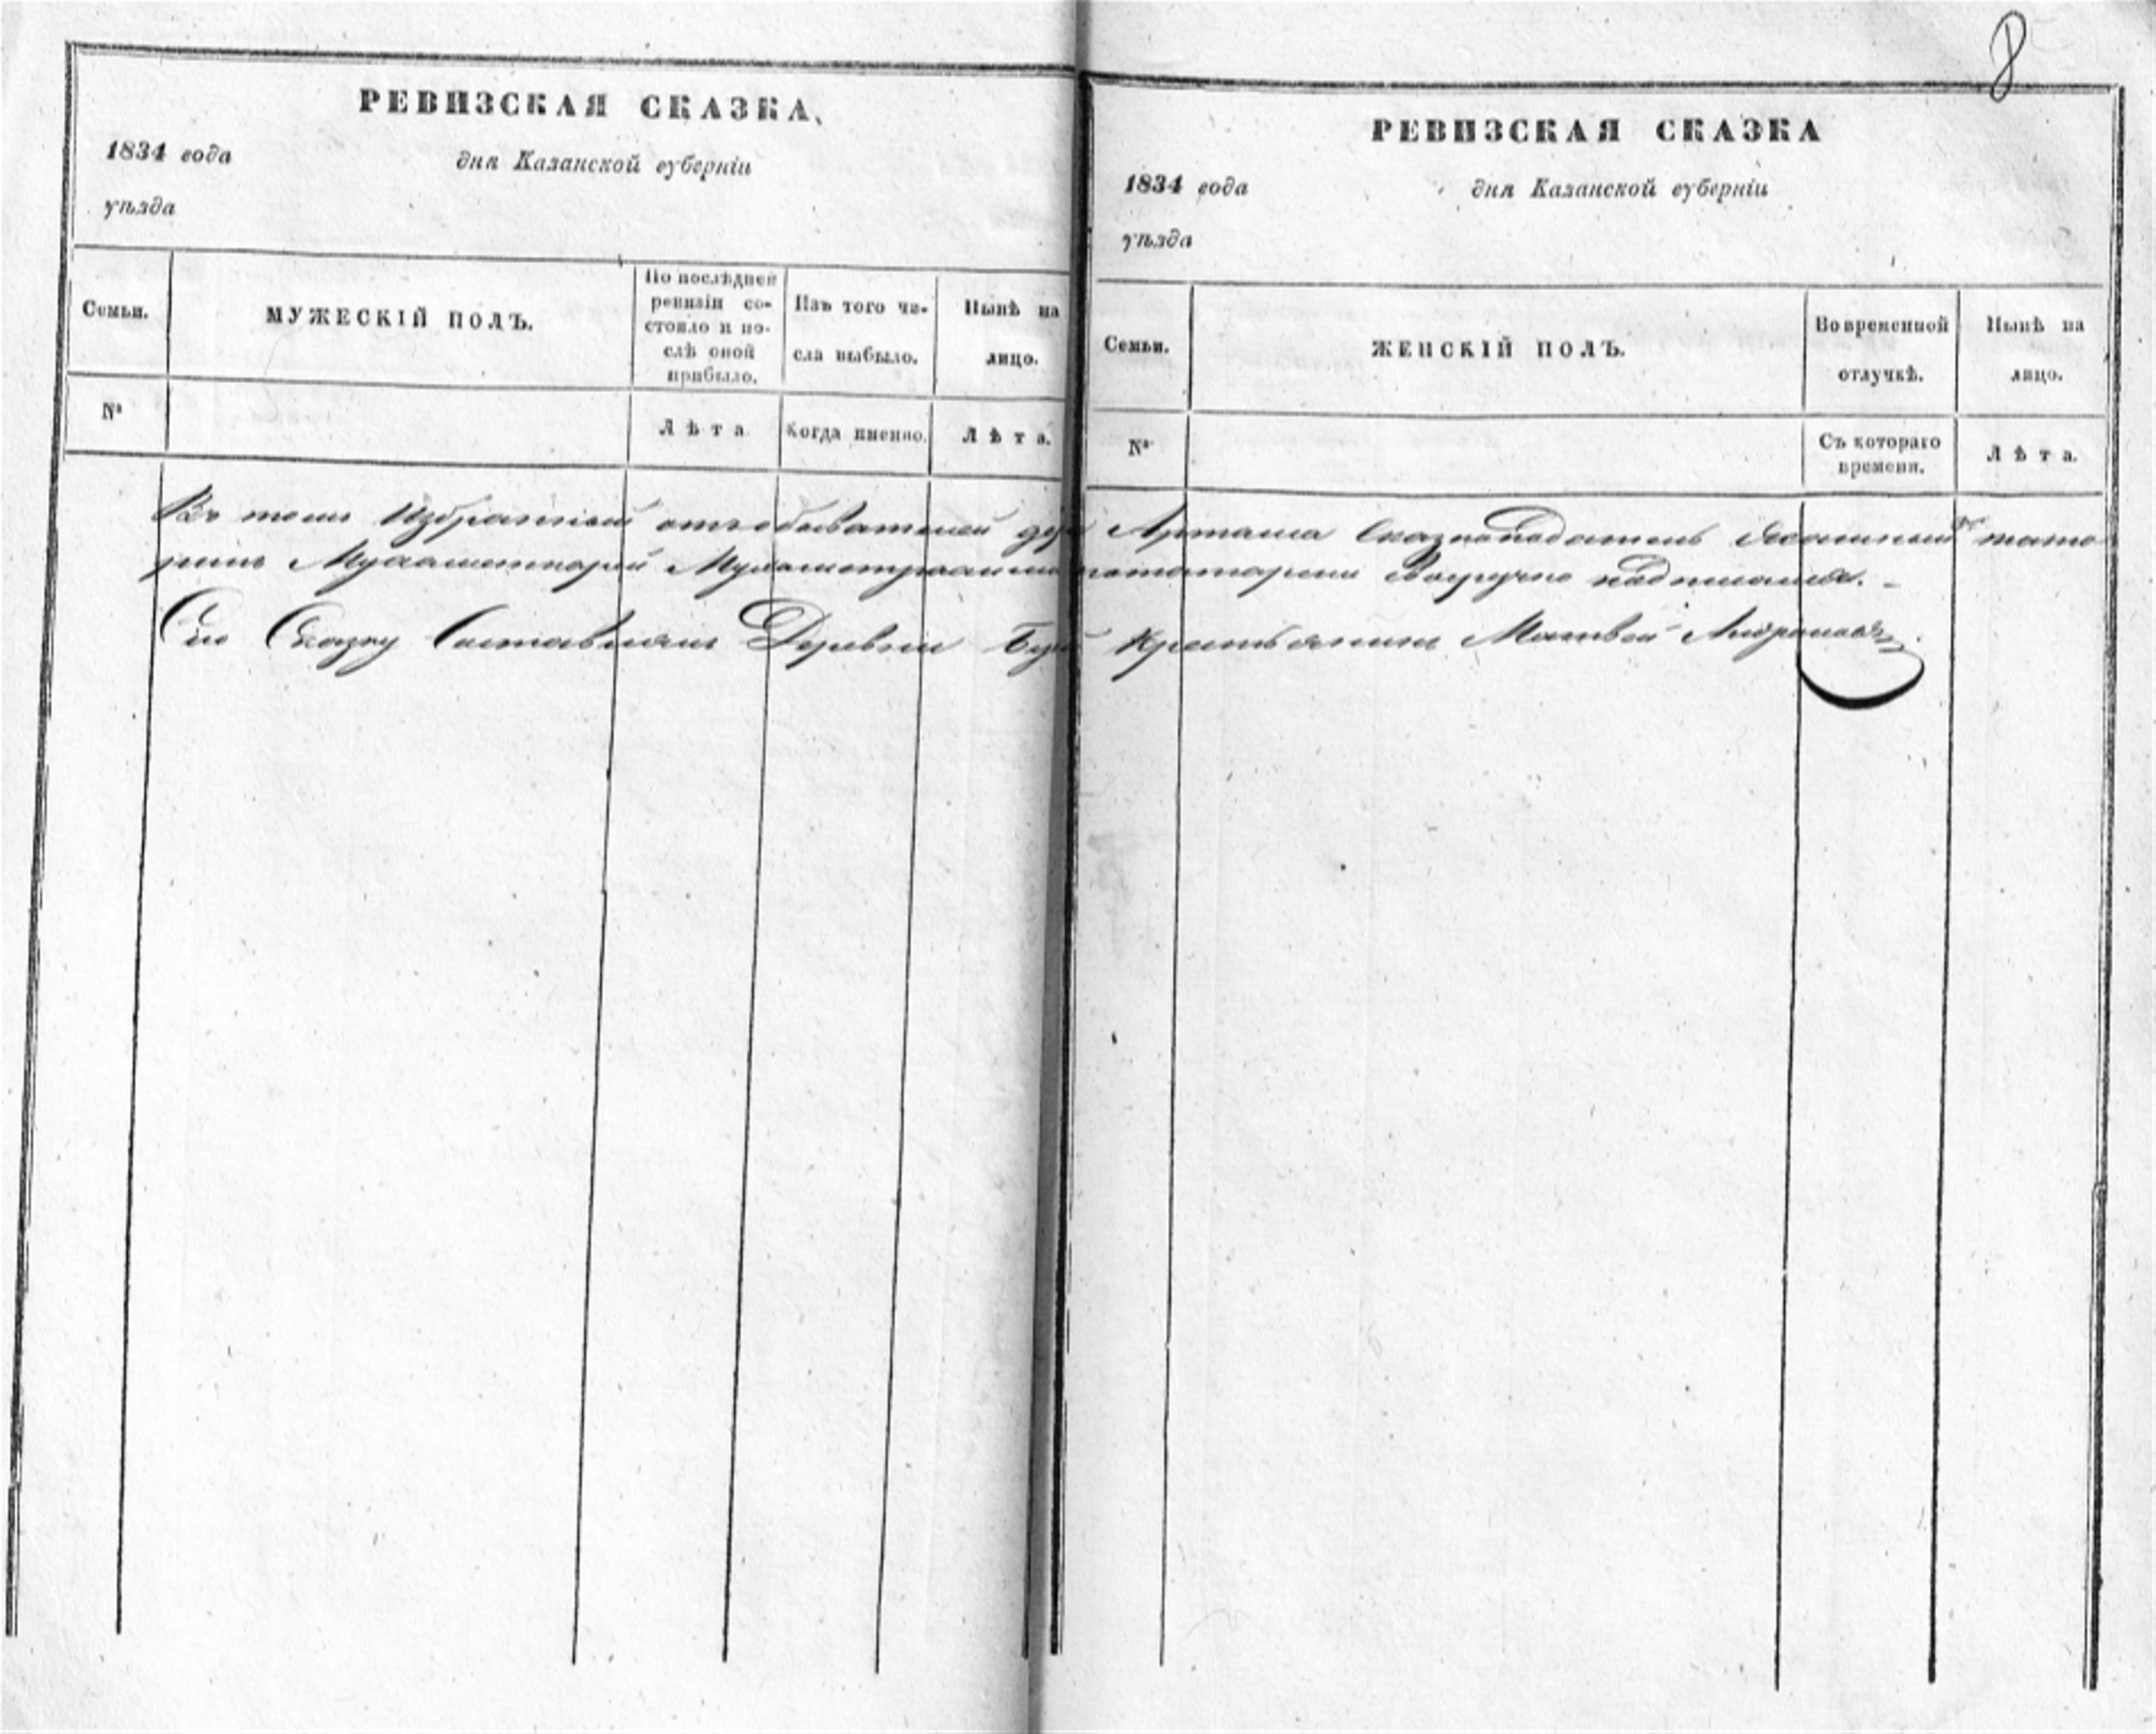 8
РЕВИЗСКАЯ СКАЗКА.
1834 года
дня Казанской губерніи
уѣзда
Семьи.
МУЖЕСКІЙ ПОЛЪ.
По послѣдней
ревизіи со-
стояло и по-
слѣ оной
прибыло.
Изъ того чи-
сла выбыло.
Нынѣ на
лицо.
№
Лѣта
Когда именно.
Лѣта.
РЕВИЗСКАЯ СКАЗКА
1834 года
дня Казанской губерніи
уѣзда
Семьи.
ЖЕНСКІЙ ПОЛЪ.
Во временной
отлучкѣ.
Нынѣ на
лицо.
№
Съ котораго
времени.
Лѣта.
Въ томъ Избранный отъ обывателей Сказкоподатель ясашный тата
ринъ потатарски своеручно подписался.
Сію Сказку Составлялъ Деревни Крестьянинъ Матвей